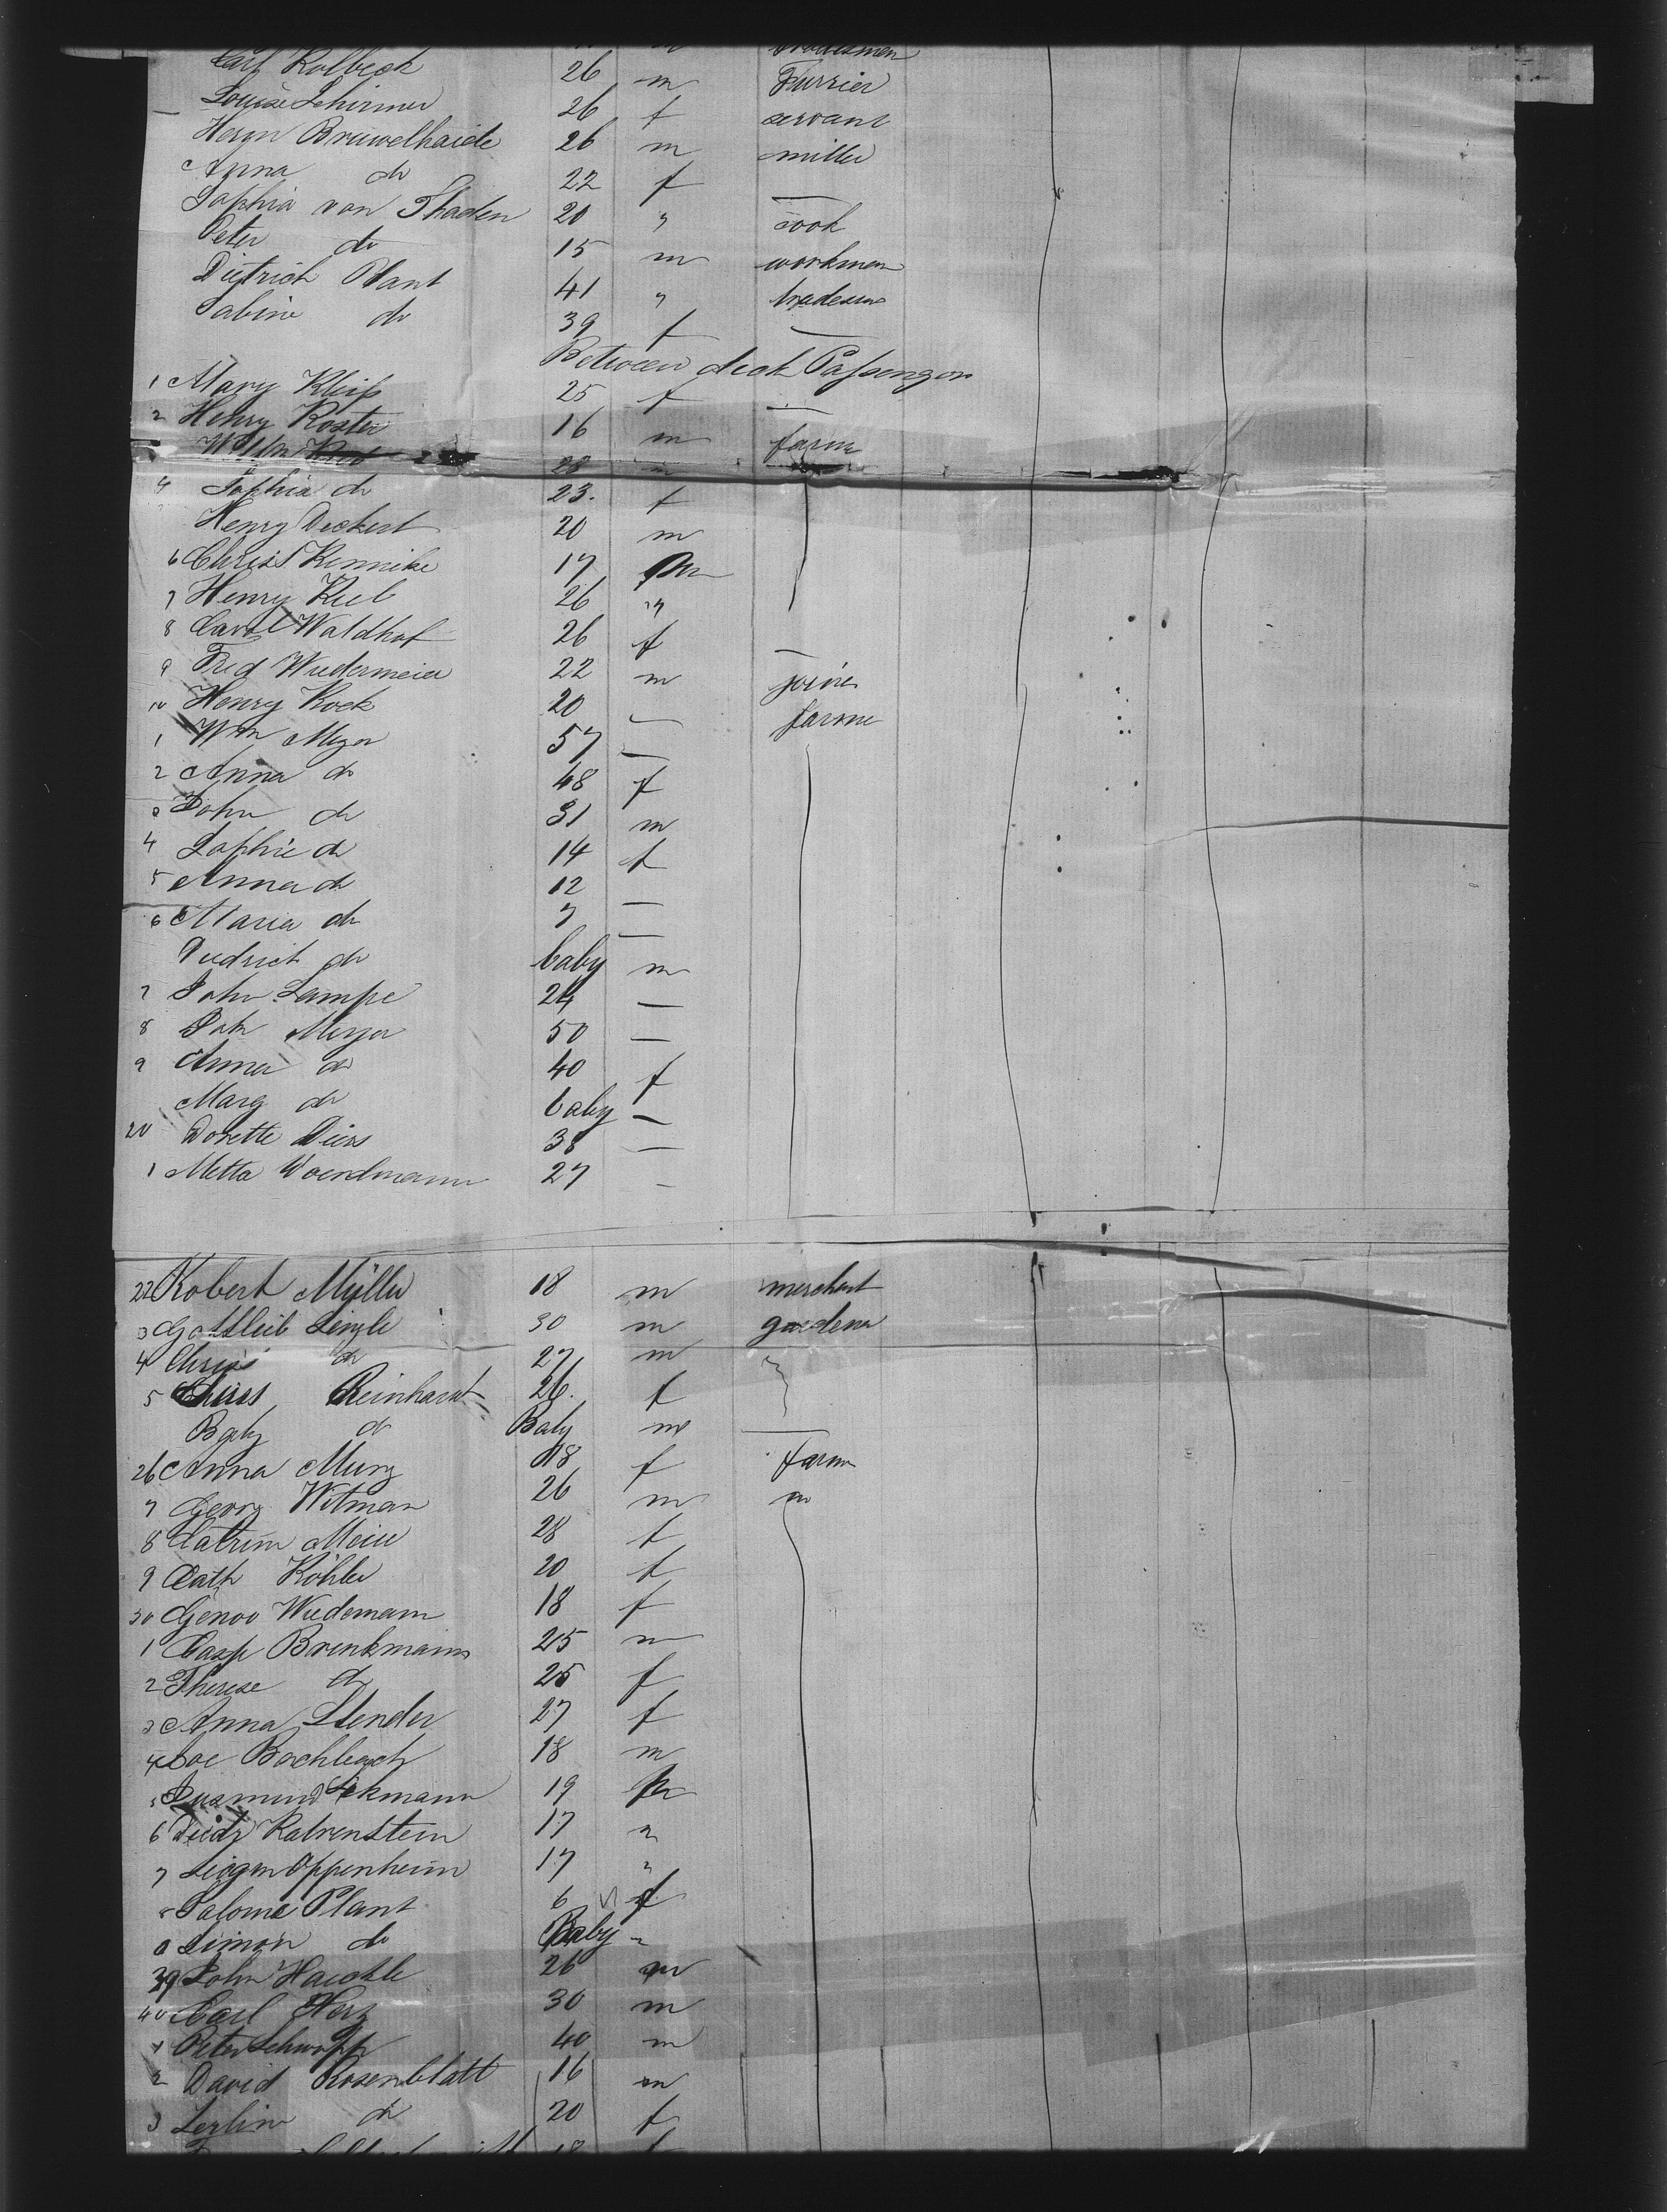 Tradesmen
Carl Kolbeck 26 m Furrier
Louise Schirmer 26 f servant
Herm Bruwelhaide 26 m miller
Anna do 22 f —
Sophia von Thaden 20 " cook
Peter do 15 m workman
Dietrich Plant 41 " tradesm
Sabine do 39 f —
Between deck Passengers
1 Mary Kleiß 25 f —
2 Henry Koster 16 m farm
28 m
4 Sophia do 23. f
Henry Deckert 20 m
6 Christ Rennike 17 m
7 Henry Kieb 26 "
8 Carol Waldhof 26 f —
9 Fred Wiedermeier 22 m joiner
10 Henry Kock 20 — farme
1 Wm Meyer 57 —
2 Anna do 48 f
3 John do 31 m
4 Sophie do 14 f
5 Anna do 12 —
6 Maria do 7 —
Diedrich do baby m
7 John Lampe 24 —
8 Joh Meyer 50 —
9 Anna do 40 f
Marg do baby —
20 Dorette Diers 38 —
1 Metta Woerdmann 27 -
22 Robert Müller 18 m merchant
3 Gottlieb Single 30 m gardener
4 Chriss do 27 m
5 Reinhardt 26. f
Baby do Baby m —
26 Anna Murz 18 f Farm
7 Georg Witman 26 m do
8 Catrim Meier 28 f
9 Cath Köhler 20 f
30 Genov Wiedemann 18 f
1 Casp Brinkmann 25 m
2 Therese do 25 f
3 Anna Stender 27 f
4 Bachbach 18 m
5 19 m
6 Katzenstein 17 "
7 Oppenheim 17 "
8 Salome Plant 6 f
0 Simon do Baby "
39 John Haechle 26 m
40 Carl Herz 30 m
1 Peter Schwapp 40 m
2 David Rosenblatt 16 m
3 Serline do 20 f
18 f